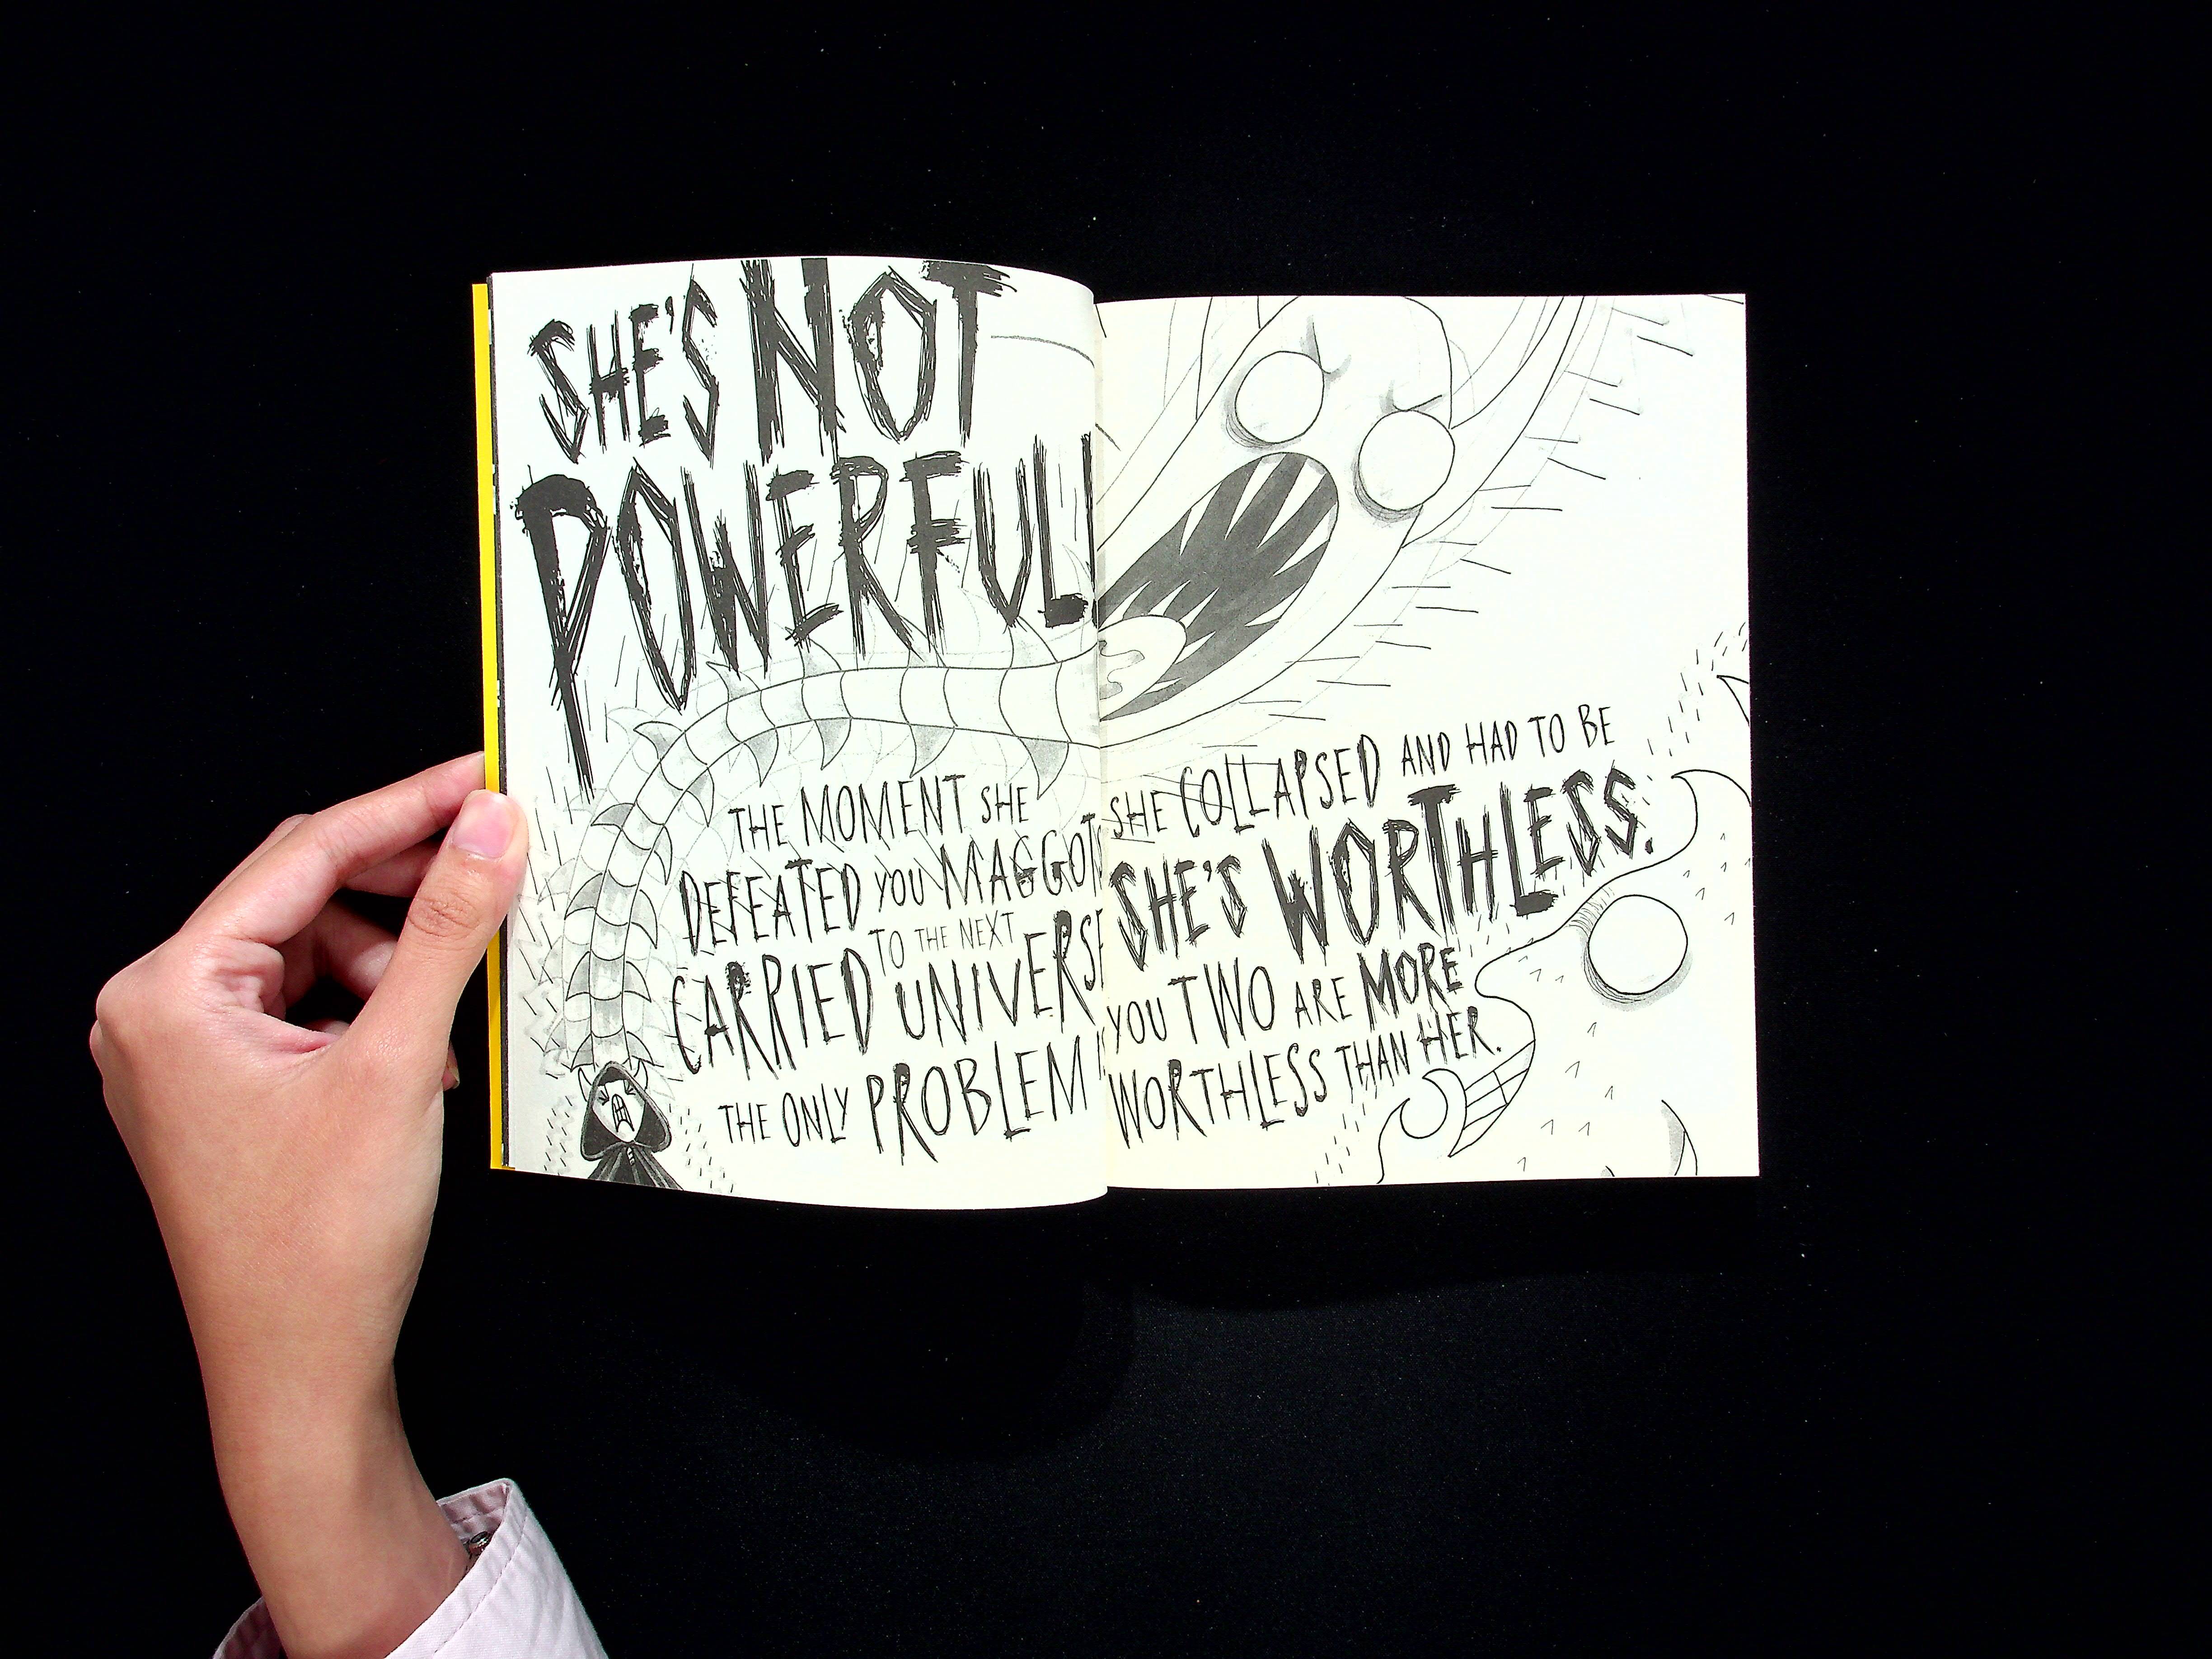 SHE'S NOT
POWERFUL!
THE MOMENT SHE
DEFEATED YOU MAGGOTS
SHE COLLAPSED AND HAD TO BE
CARRIED TO THE NEXT UNIVERSE
SHE'S WORTHLESS.
THE ONLY PROBLEM
YOU TWO ARE MORE
WORTHLESS THAN HER.